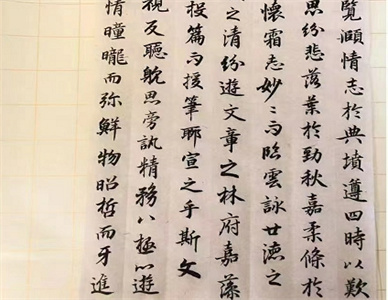 覽頤情志於典墳遵四時以歎
思紛悲落葉於勁秋嘉柔條於
懷霜志妙〻而臨雲詠世德之
之清紛遊文章之林府嘉藻
投篇而援筆聊宣之乎斯文
視反聽躭思旁訊精務八極心遊
情曈曨而弥鮮物昭哲而牙進